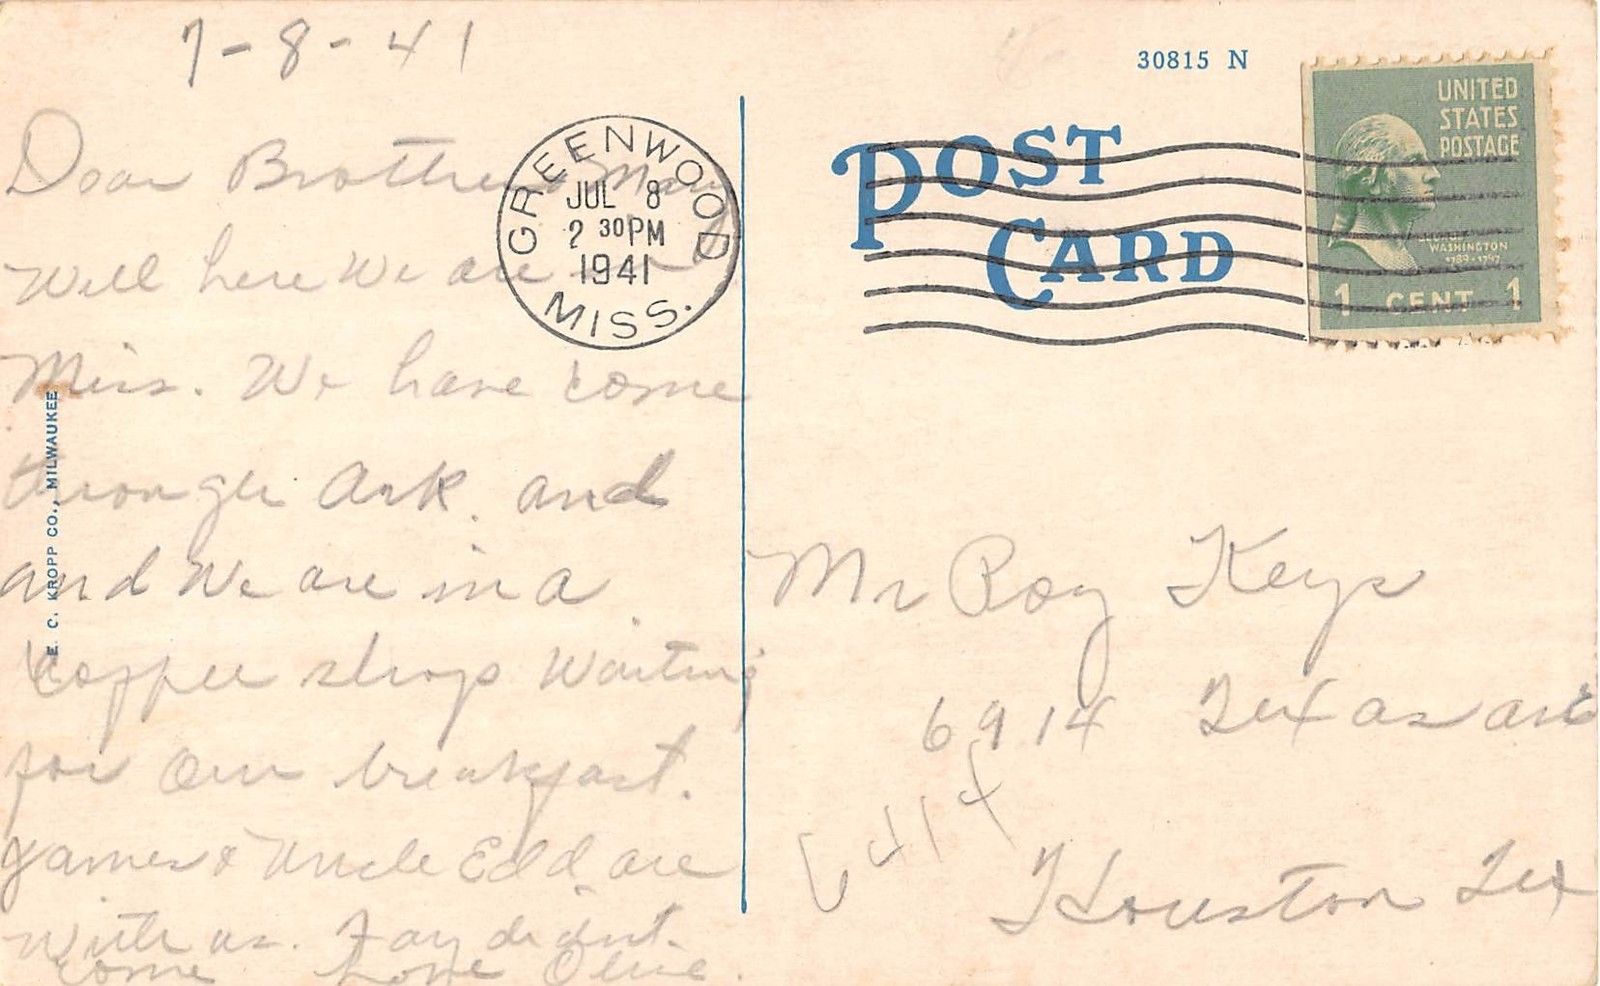 7-8-41
Dear Brother & May
Well here we are in
Miss. We have come
through Ark. and
and we are in a
coffee shop waiting
for our breakfast.
James & Uncle Edd are
with us. Fay didn't.
come Love Olive.
E. C. KROPP CO., MILWAUKEE
GREENWOOD
JUL 8
2 30 PM
1941
MISS.
30815 N
POST
CARD
UNITED
STATES
POSTAGE
GEORGE
WASHINGTON
1789-1797
1 CENT 1
Mr Roy Keys
6914 Texas ave
6414
Houston Tex